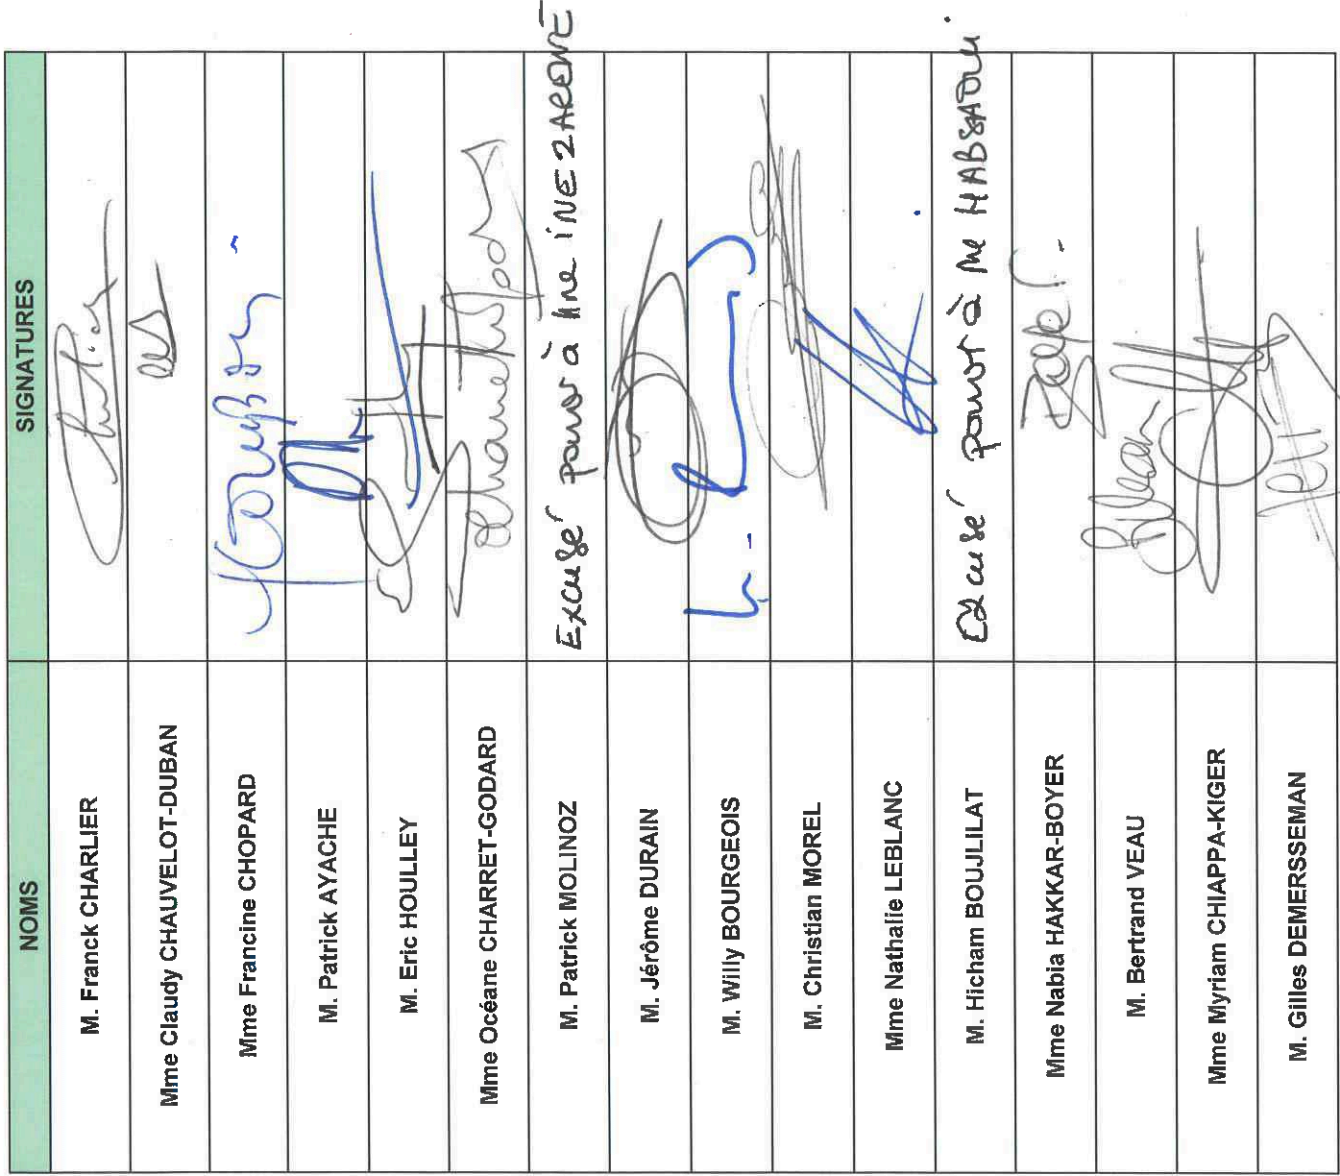 NOMS SIGNATURES
M. Franck CHARLIER
Mme Claudy CHAUVELOT-DUBAN
Mme Francine CHOPARD
M. Patrick AYACHE
M. Eric HOULLEY
Mme Océane CHARRET-GODARD
M. Patrick MOLINOZ Excusé pouvoir à Mme INEZARENE
M. Jérôme DURAIN
M. Willy BOURGEOIS
M. Christian MOREL
Mme Nathalie LEBLANC
M. Hicham BOUJLILAT Excusé pouvoir à Me HABSAOUI
Mme Nabia HAKKAR-BOYER
M. Bertrand VEAU BVeau
Mme Myriam CHIAPPA-KIGER
M. Gilles DEMERSSEMAN